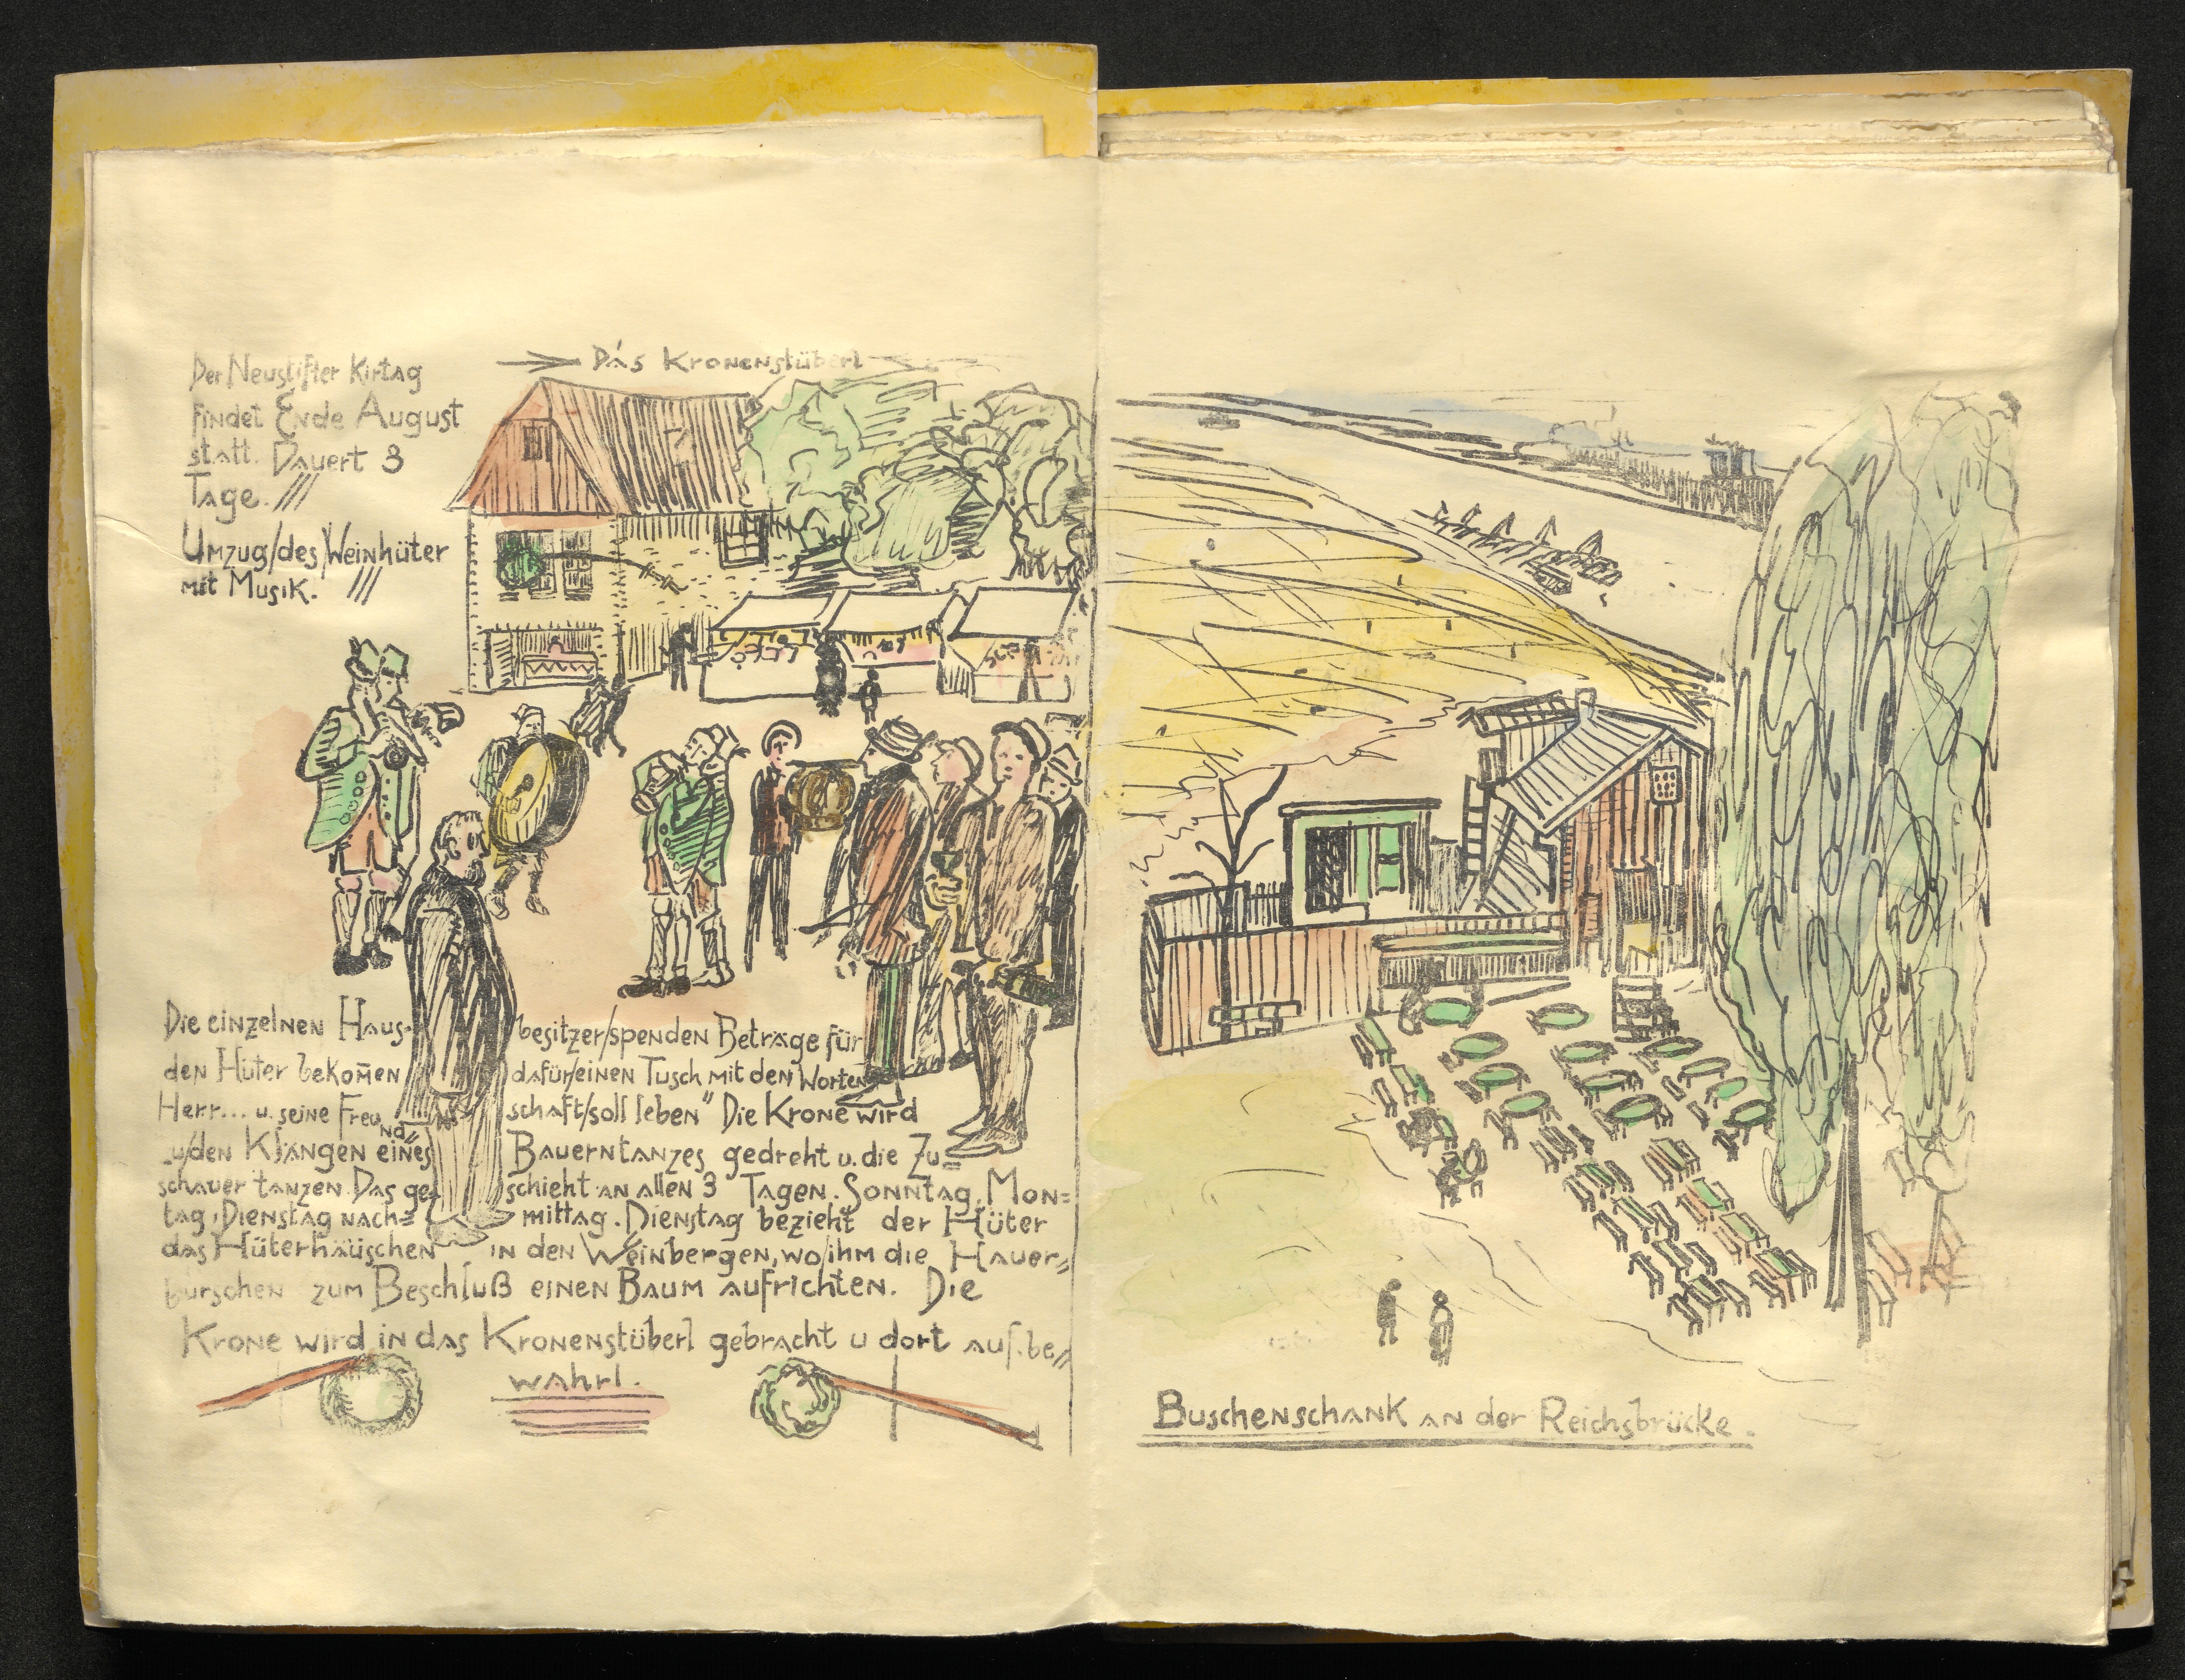 Der Neustifter Kirtag
findet Ende August
statt. Dauert 3
Tage. ///
Umzug/des/Weinhüter
mit Musik. ///
Das Kronenstüberl
Die einzelnen Haus- besitzer/spenden Beträge für
den Hüter bekom̄en dafür/einen Tusch mit den Worten
Herr... u. seine Freund= schaft/soll leben" Die Krone wird
u/den Klängen eines Bauerntanzes gedreht u. die Zu=
schauer tanzen. Das ge= schieht an allen 3 Tagen. Sonntag, Mon=
tag, Dienstag nach= mittag. Dienstag bezieht der Hüter
das Hüterhäuschen in den Weinbergen, wo/ihm die Hauer=
burschen zum Beschluß einen Baum aufrichten. Die
Krone wird in das Kronenstüberl gebracht u dort aufbe=
wahrt.
Buschenschank an der Reichsbrücke.